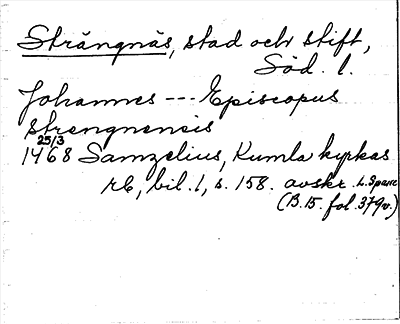 Strängnäs, stad och stift,
Söd. l.
Johannes --- Episcopus
strengnensis
25/3
1468 Samzelius, Kumla kyrkas
rb, bil. 1, s. 158. avskr. L. Sparre
(B.15. fol. 379v.)